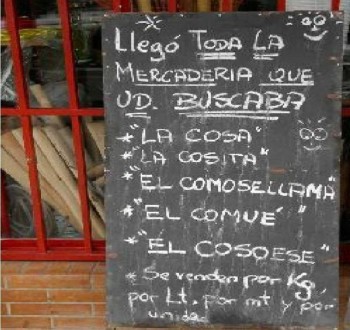 Llegó TODA LA
MERCADERIA QUE
UD. BUSCABA
*"LA COSA"
*"LA COSITA"
*"EL COMOSELLAMA"
*"EL COMUÉ"
*"EL COSOESE"
*Se venden por Kg,
por Lt. por mt y por
unidad